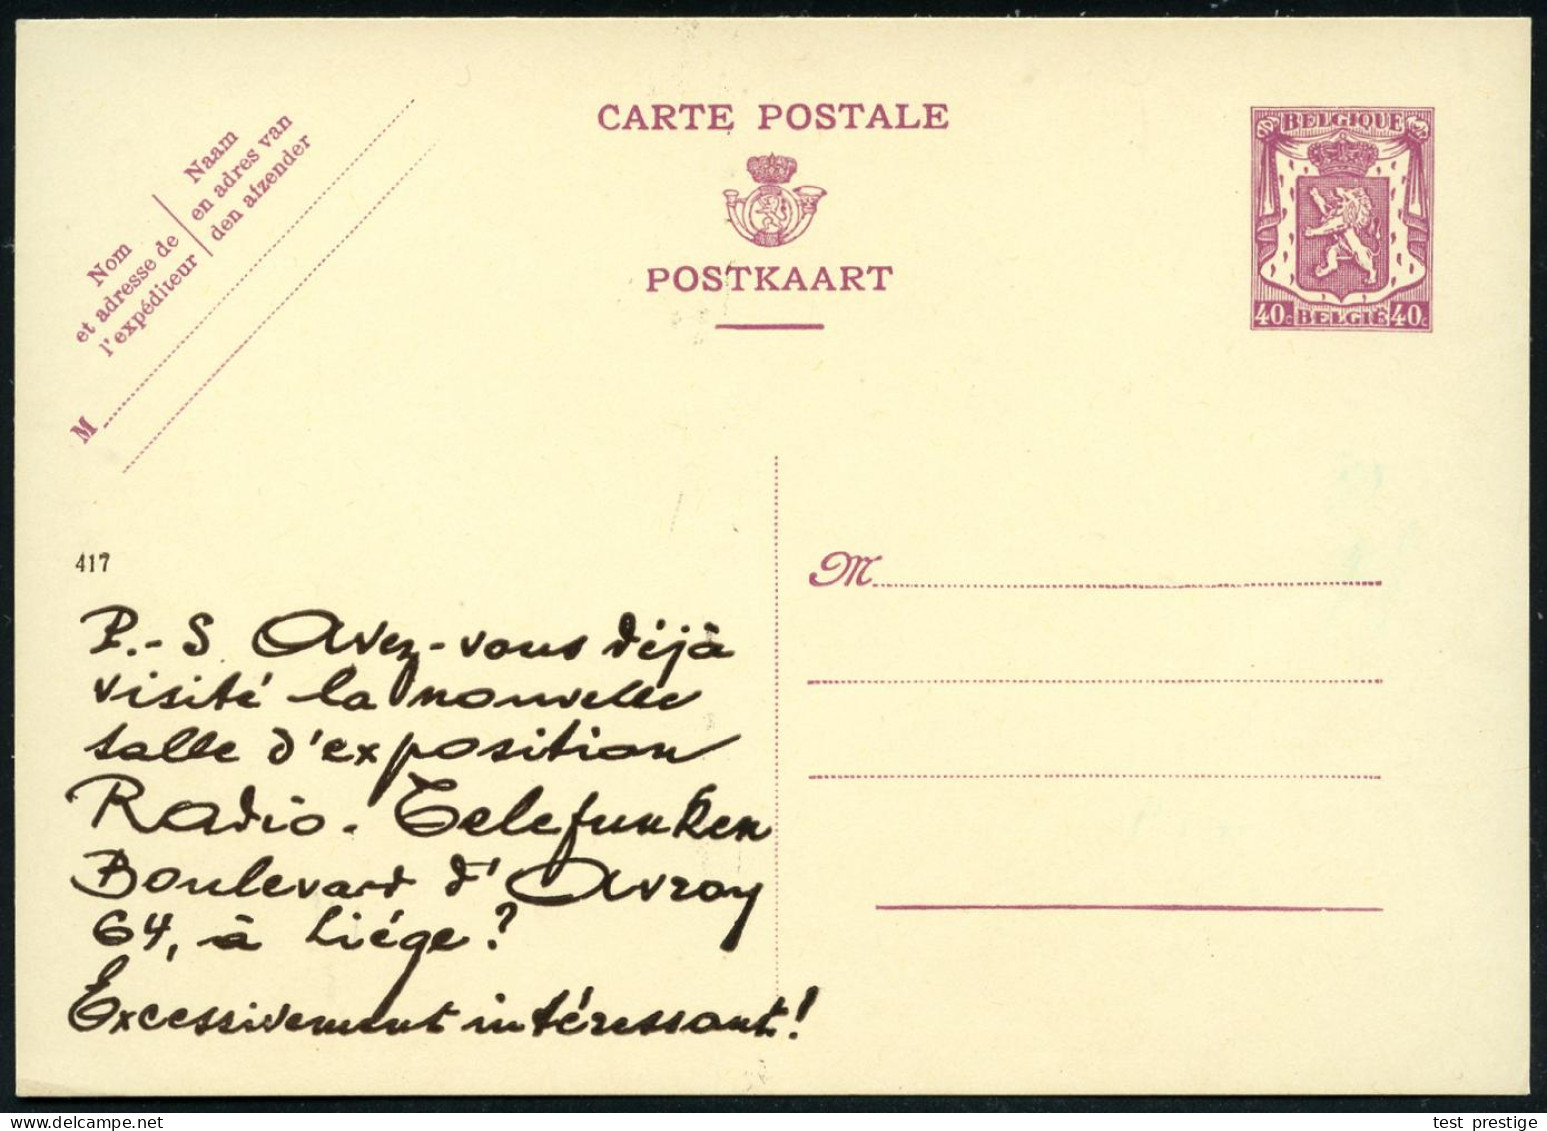 CARTE POSTALE
POSTKAART
BELGIQUE
40c BELGIË 40c
Nom
et adresse de
l'expéditeur
Naam
en adres van
den afzender
M
417
M
P.-S. Avez-vous déjà
visité la nouvelle
salle d'exposition
Radio-Telefunken
Boulevard d'Avroy
64, à Liége?
Excessivement intéressant!
test prestige